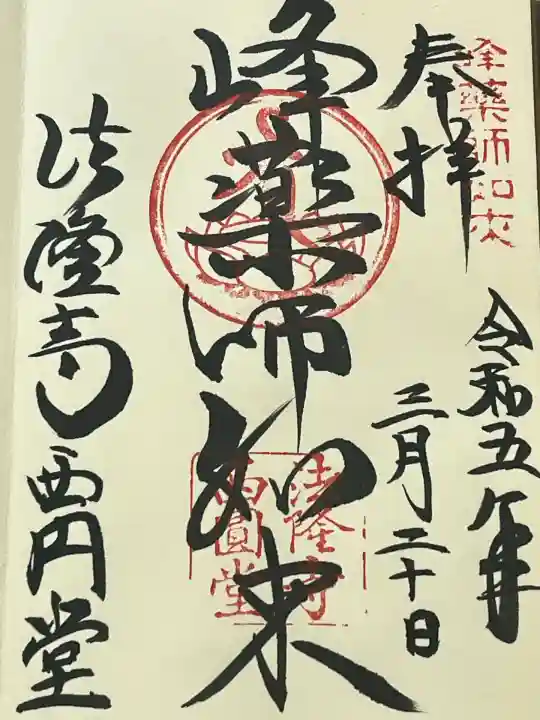 峰薬師如来
奉拝
令和五年
三月二十日
峰薬師如来
法隆寺
西圓堂
法隆寺西円堂